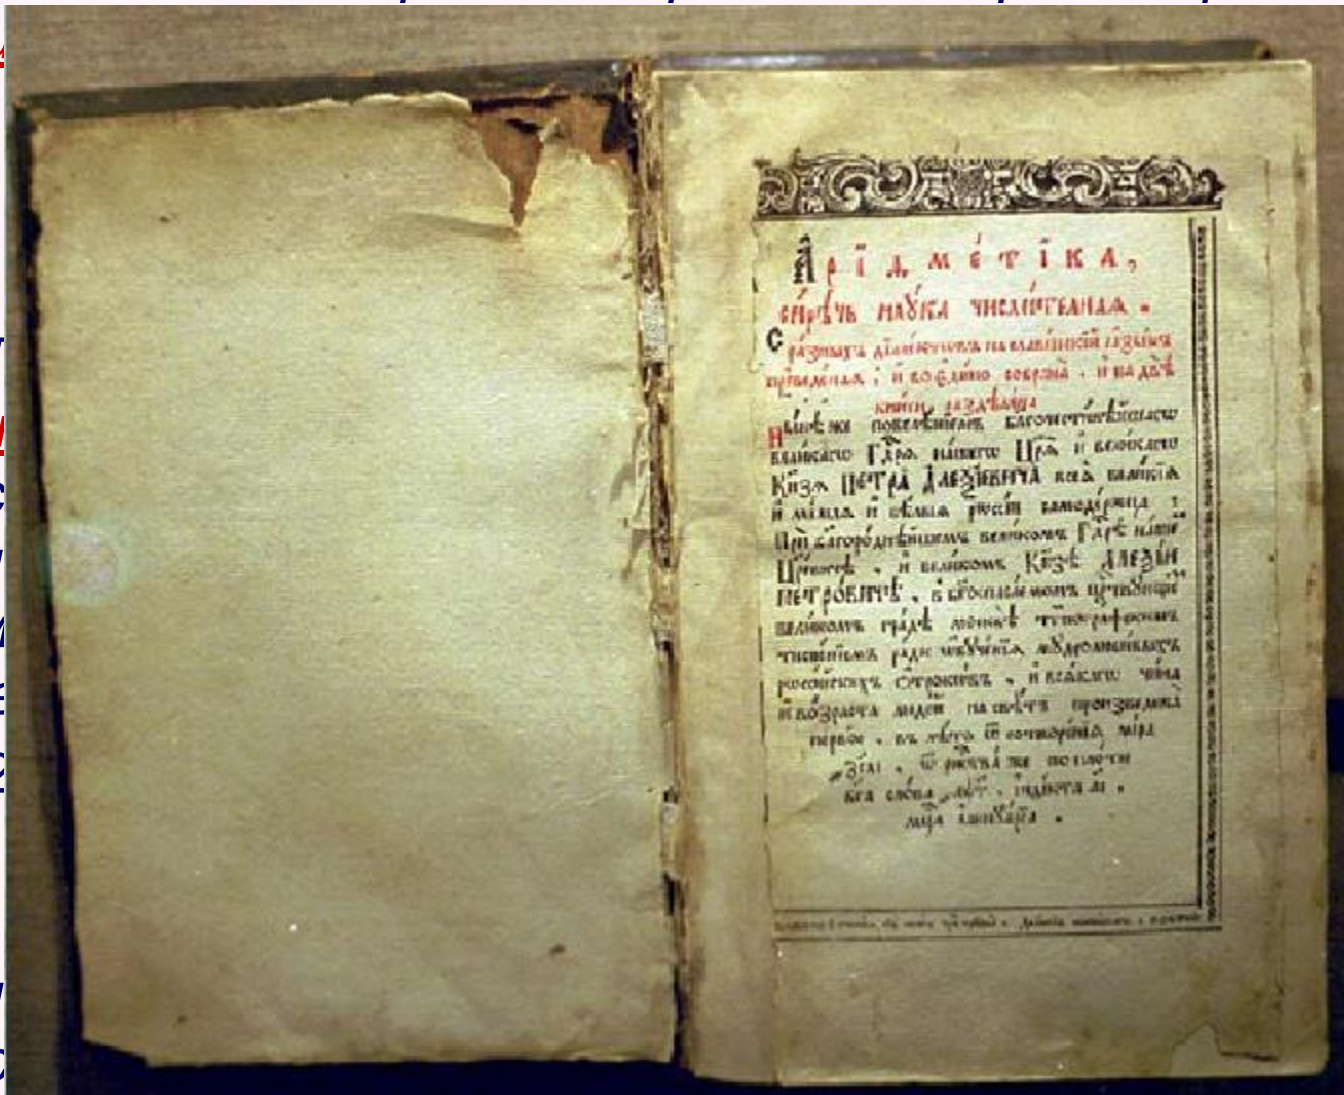 Арїѳметїка,
сирѣчь наука числителная.
С разныхъ дїалектовъ на славенскїй языкъ
преведеная, и во едино собрана, и на двѣ
книги раздѣлена
Нынѣ же повелѣнїемъ благочестивѣйшагѡ
великагѡ Гдря нашегѡ Цря и великагѡ
Кнзя ПЕТРА АЛЕѮІЕВИЧА всея великїя
и малыя и бѣлыя рѡссїи самодержца:
При благороднѣйшемъ великомъ Гдрѣ нашемъ
Цревичѣ, и великомъ Кнзѣ АЛЕѮІИ
ПЕТРОВИЧѢ, в бгоспасаемомъ црствующемъ
великомъ градѣ москвѣ тѵпографскимъ
тисненїемъ ради ѡбученїя мудролюбивыхъ
рѡссїйскихъ ѻтрокѡвъ, и всякагѡ чина
и возраста людей на свѣтъ произведена
первое, въ лѣто ѿ сотворенїя мїра
҂зсаі, ѿ рждства же по плоти
бга слова ҂аѱг, їндїкта аі,
мца їаннуарїа.